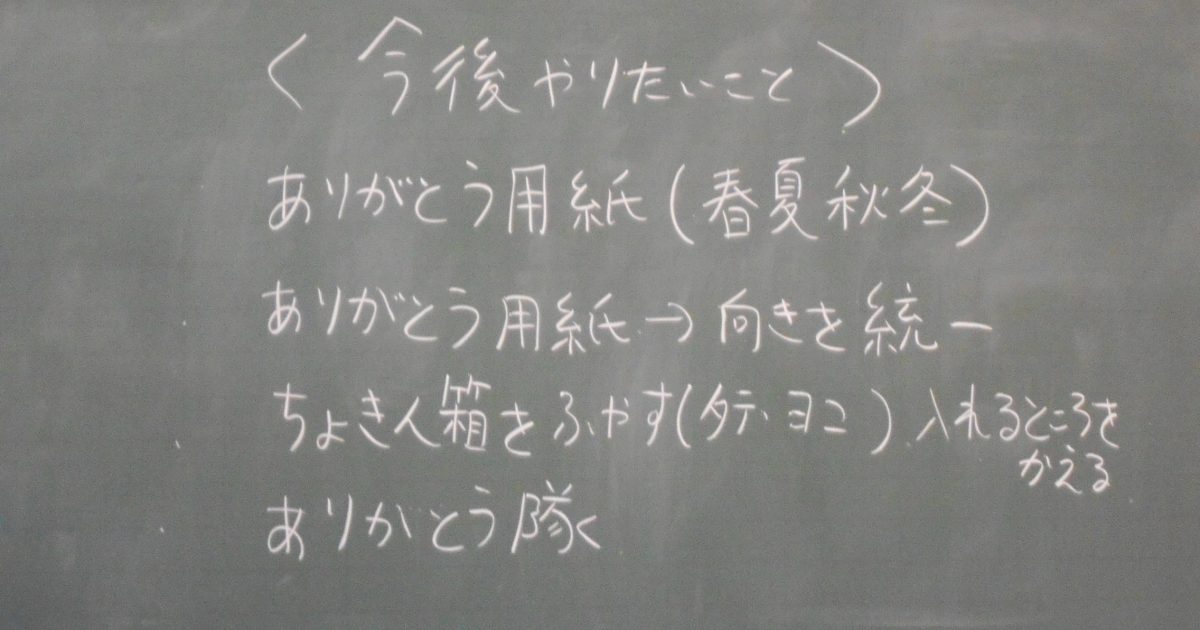 〈今後やりたいこと〉
ありがとう用紙(春夏秋冬)
ありがとう用紙→向きを統一
ちょきん箱をふやす(タテ、ヨコ)入れるところを
かえる
ありがとう隊